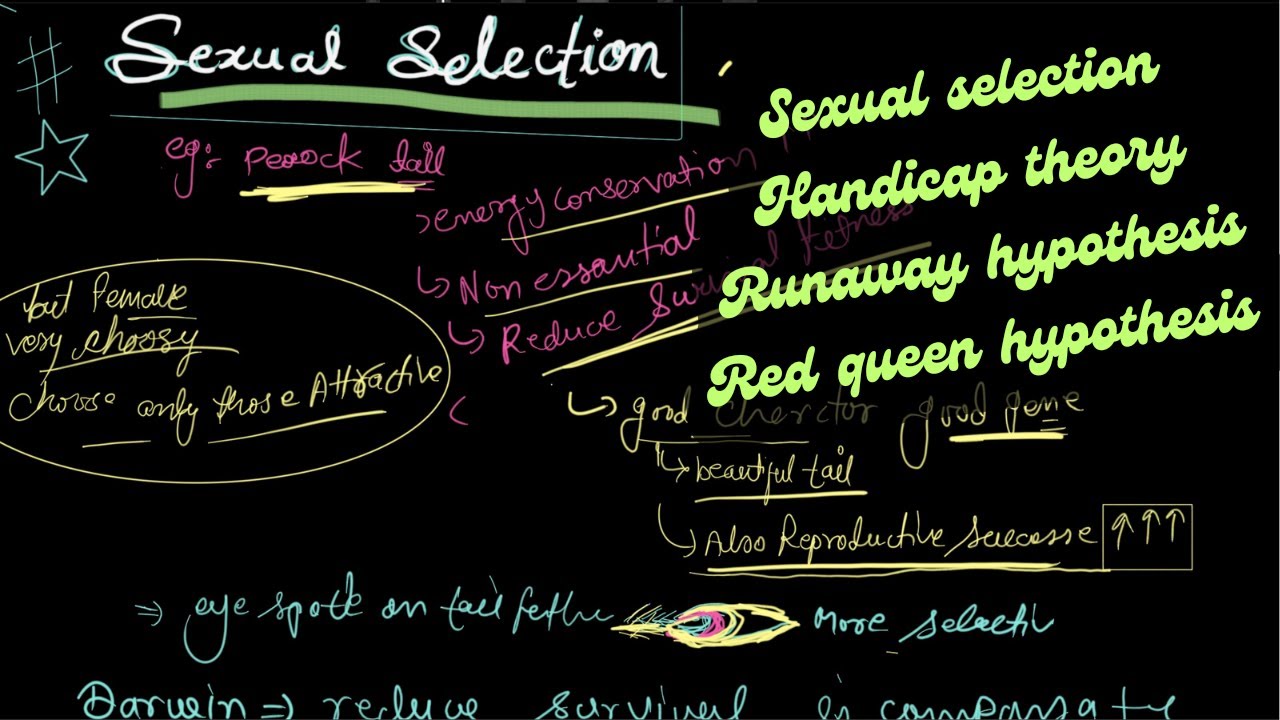 # Sexual Selection
eg:- Pecock tail
energy conservation
Non essantial
Reduce Survival fetness
but female
very choosy
choose only those Attractive
good Cherctor good gene
beautiful tail
Also Reproductive Succsse ↑↑↑
⇒ eye spote on tail fethe
More selacti
Darwin ⇒ reduce survival is compansate
Sexual selection
Handicap theory
Runaway hypothesis
Red queen hypothesis